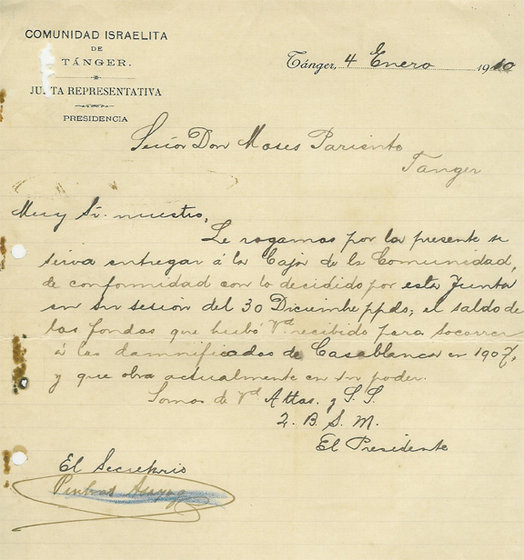 COMUNIDAD ISRAELITA
DE
TÁNGER.
JUNTA REPRESENTATIVA
PRESIDENCIA
Tánger, 4 Enero 1910
Señor Don Moses Pariente
Tanger
Muy Sr. nuestro,
Le rogamos por la presente se
sirva entregar á la Caja de la Comunidad,
de conformidad con lo decidido por esta Junta
en su sesión del 30 Diciembre ppdo, el saldo de
los fondos que hubó Vd recibido para socorrer
á los damnificados de Casablanca en 1907,
y que obra actualmente en su poder.
Somos de Vd Attos. y S. S.
Q. B. S. M.
El Presidente
El Secretario
Pinhas Asayag